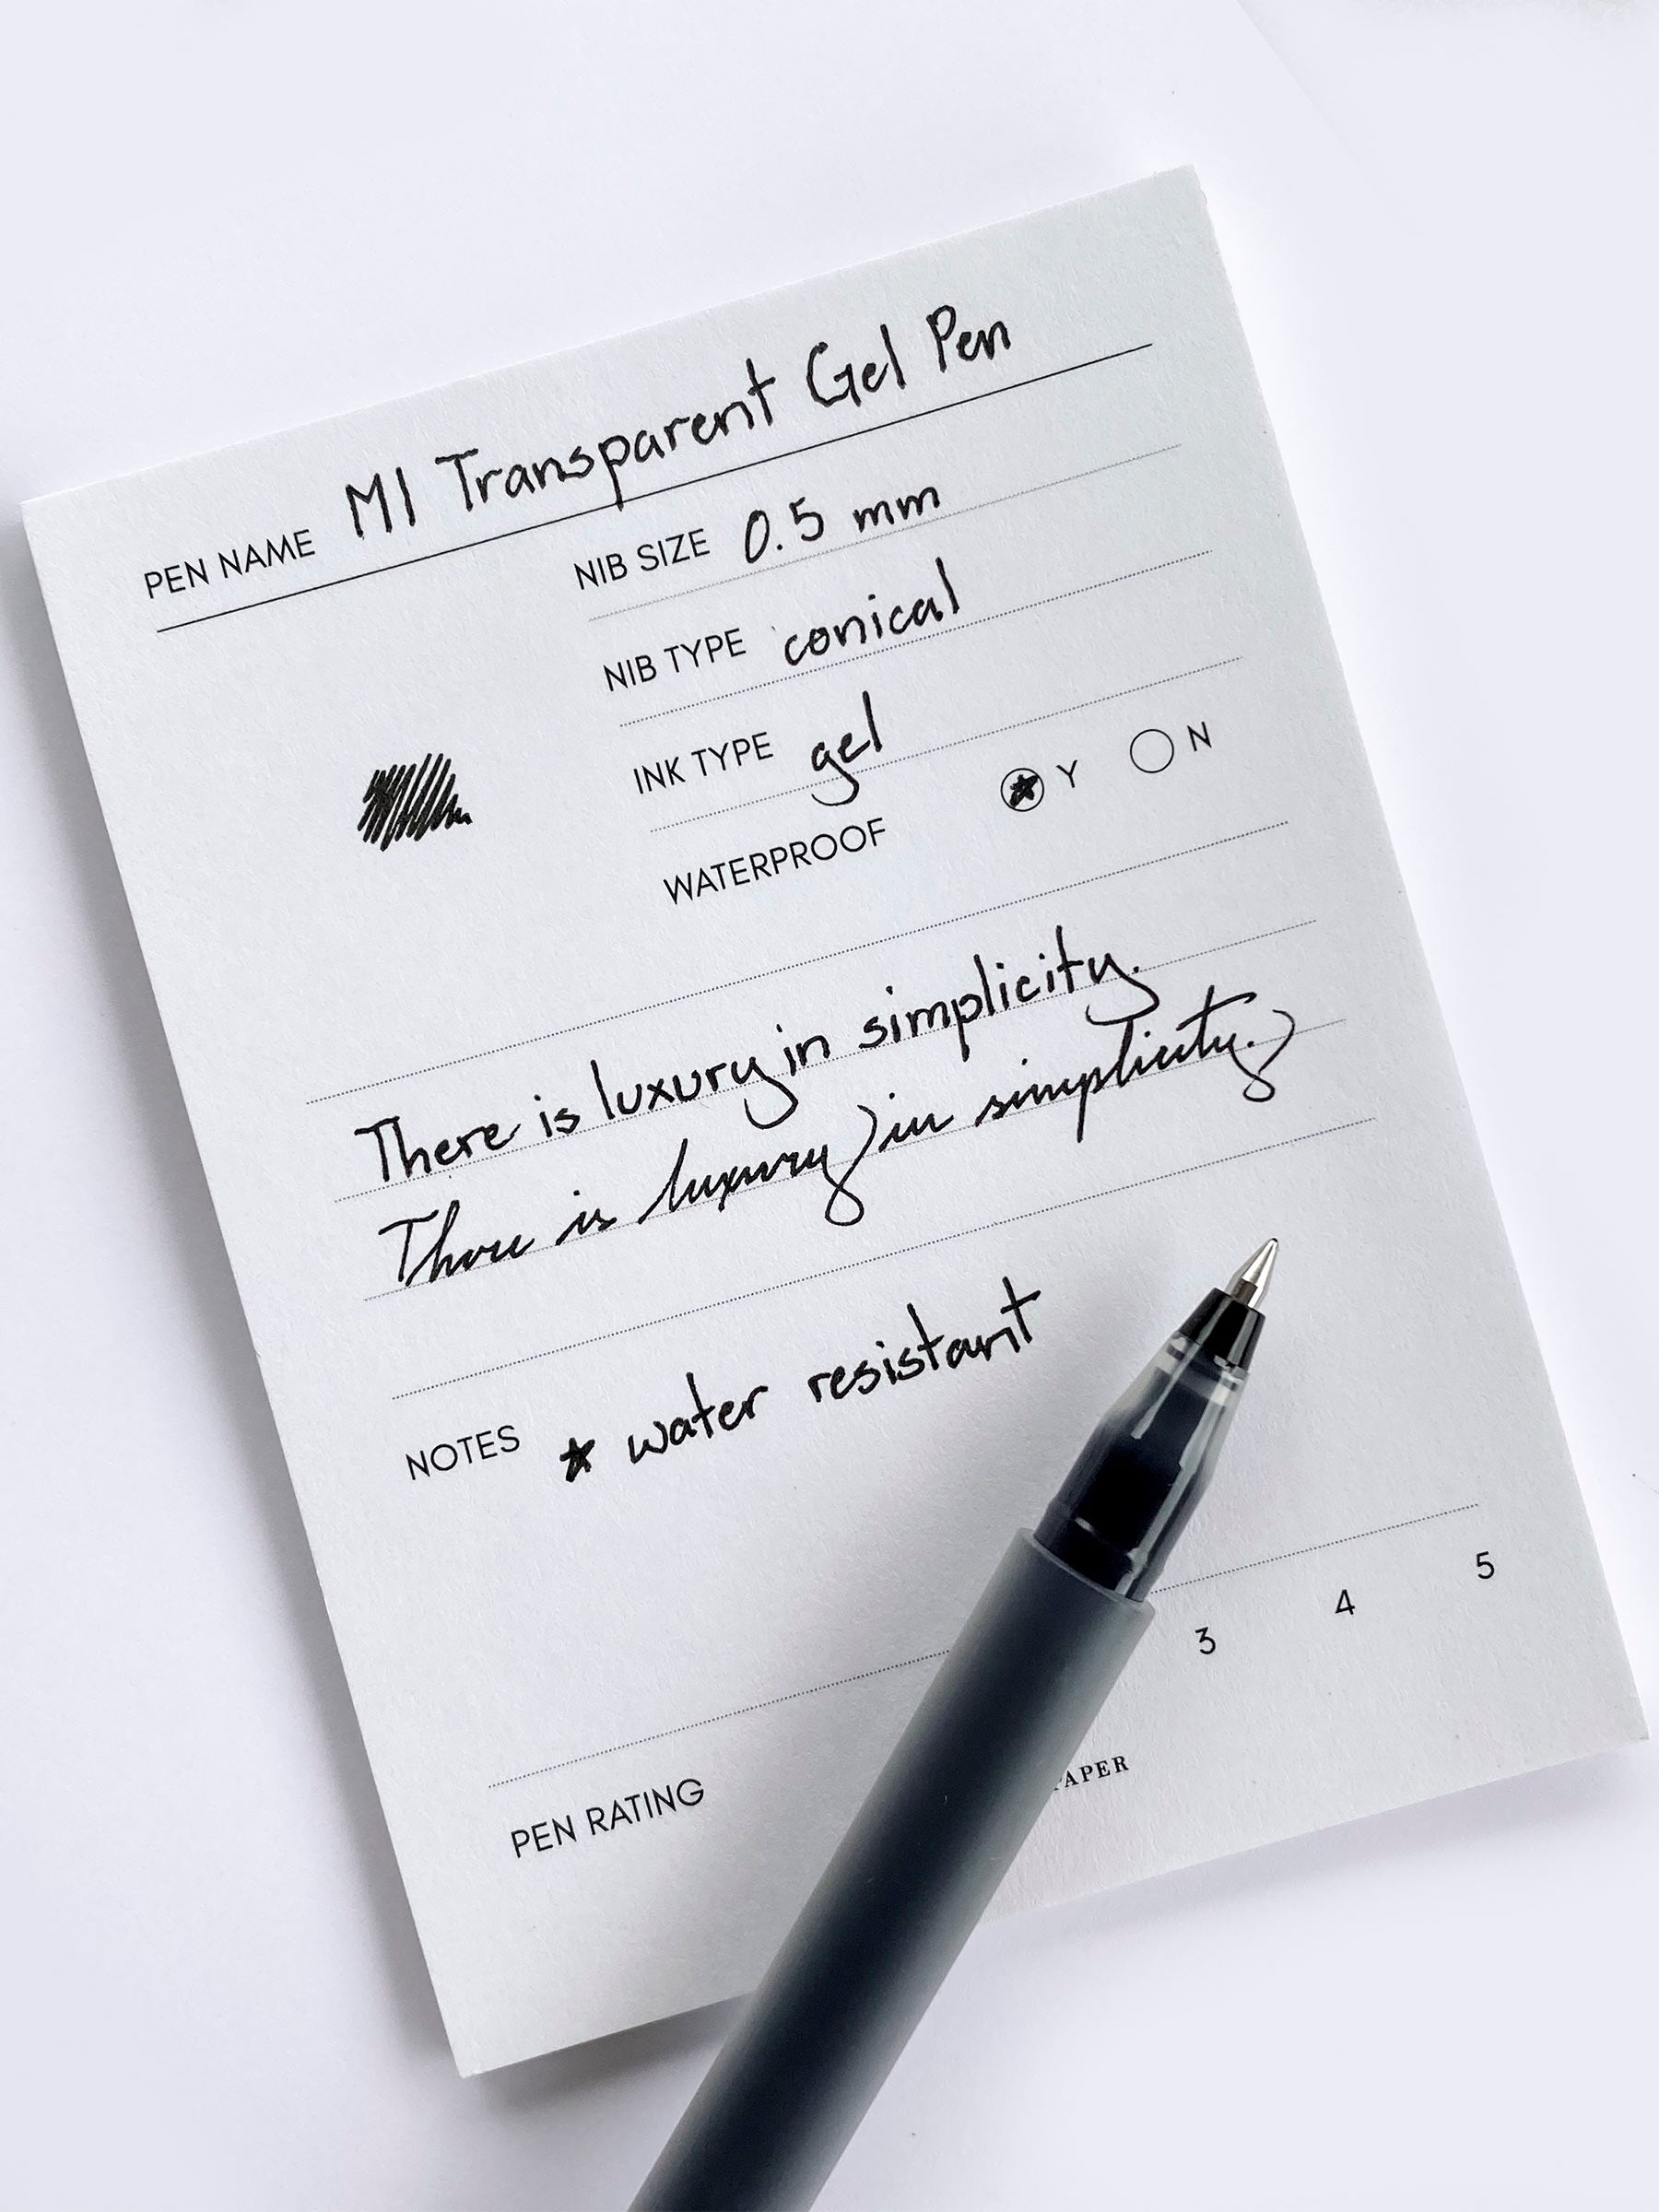 PEN NAME MI Transparent Gel Pen
NIB SIZE 0.5 mm
NIB TYPE conical
INK TYPE gel
WATERPROOF Y N
There is luxury in simplicity.
There is luxury in simplicity.
NOTES ★ water resistant
PEN RATING 3 4 5
PAPER